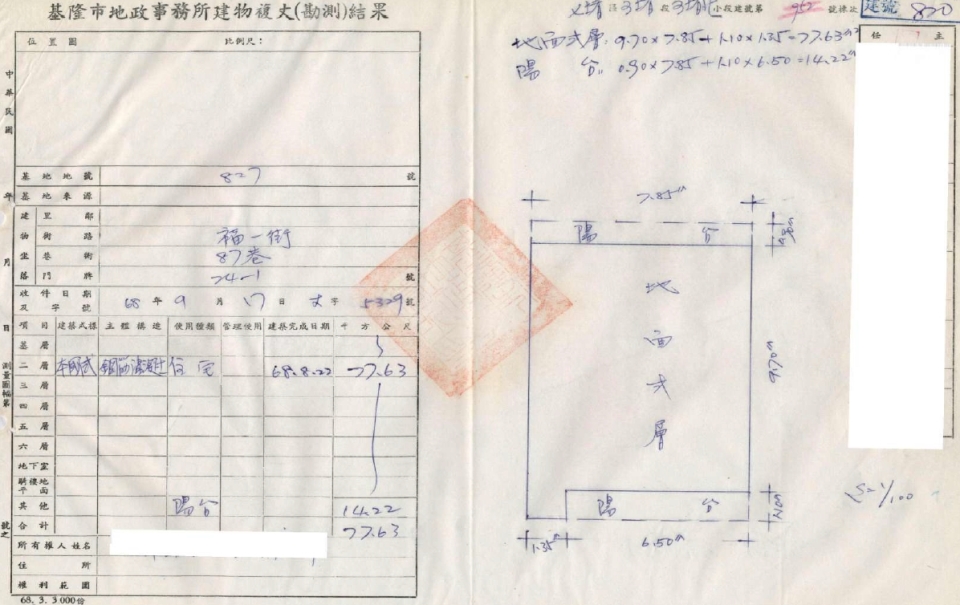 基隆市地政事務所建物複丈(勘測)結果
位置圖
比例尺：
中華民國
年
月
日
測量圖幅第
號之
基地地號 827 號
基地來源
建物坐落
里鄰
街路 福一街
巷衖 87巷
門牌 24-1 號
收件日期及字號 68年9月17日丈字5329號
項目 建築式樣 主體構造 使用種類 管理使用 建築完成日期 平方公尺
基層
二層 本國式 鋼筋混凝土 住宅 68.8.22 77.63
三層
四層
五層
六層
地下室
騎樓地平面
其他 陽台 14.22
合計 77.63
所有權人姓名
住所
權利範圍
68. 3. 3 000份
段 小段建號第 952 號棟次
建號 820
地面弍層: 9.70×7.85+1.10×1.35=77.63m²
陽台: 0.90×7.85+1.10×6.50=14.22m²
主任
7.85m
陽台
地面弍層
9.70m
陽台
1.35m
6.50m
S=1/100